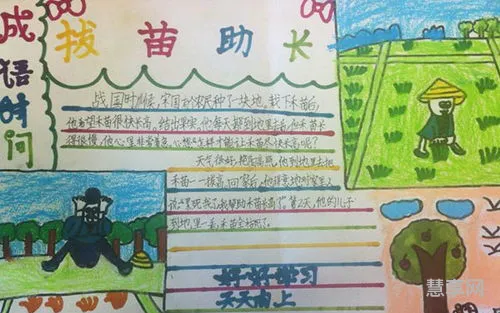 成语时间
拔苗助长
战国时候,宋国有个农民种了一块地,栽下禾苗后,
他希望禾苗很快长高,结出果实。他每天都到地里去看,但禾苗长
得很慢,他心里非常着急,心想怎么样才能让禾苗尽快长高呢?
天气很好,艳阳高照,他到地里去把
禾苗一一拔高,回家后,他得意地对家里人
说:"累死我了,我帮助禾苗长高了"第2天,他的儿子
到地里一看,禾苗全枯死了。
好好学习
天天向上